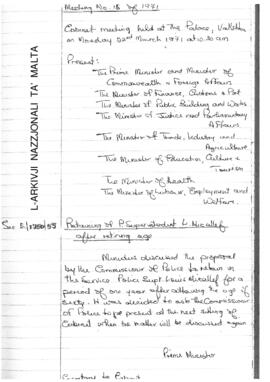 Meeting No. 18 of 1971
Cabinet meeting held at the Palace, Valletta
on Monday 22nd March, 1971 at 10 am
Present:
The Prime Minister and Minister of
Commonwealth & Foreign Affairs
The Minister of Finance, Customs & Port
The Minister of Public Building and Works
The Minister of Justice and Parliamentary
Affairs
The Minister of Trade, Industry and
Agriculture
The Minister of Education, Culture &
Tourism
The Minister of Health
The Minister of Labour, Employment and
Welfare.
L-ARKIVJI NAZZJONALI TA' MALTA
Retaining of P. Superintendent L. Micallef
after retiring age
Ministers discussed the proposal
by the Commissioner of Police to retain in
the Service Police Supt. Louis Micallef for a
period of one year after attaining the age of
sixty. It was decided to ask the Commissioner
of Police to be present at the next sitting of
Cabinet when the matter will be discussed again.
Prime Minister
Secretary to Cabinet